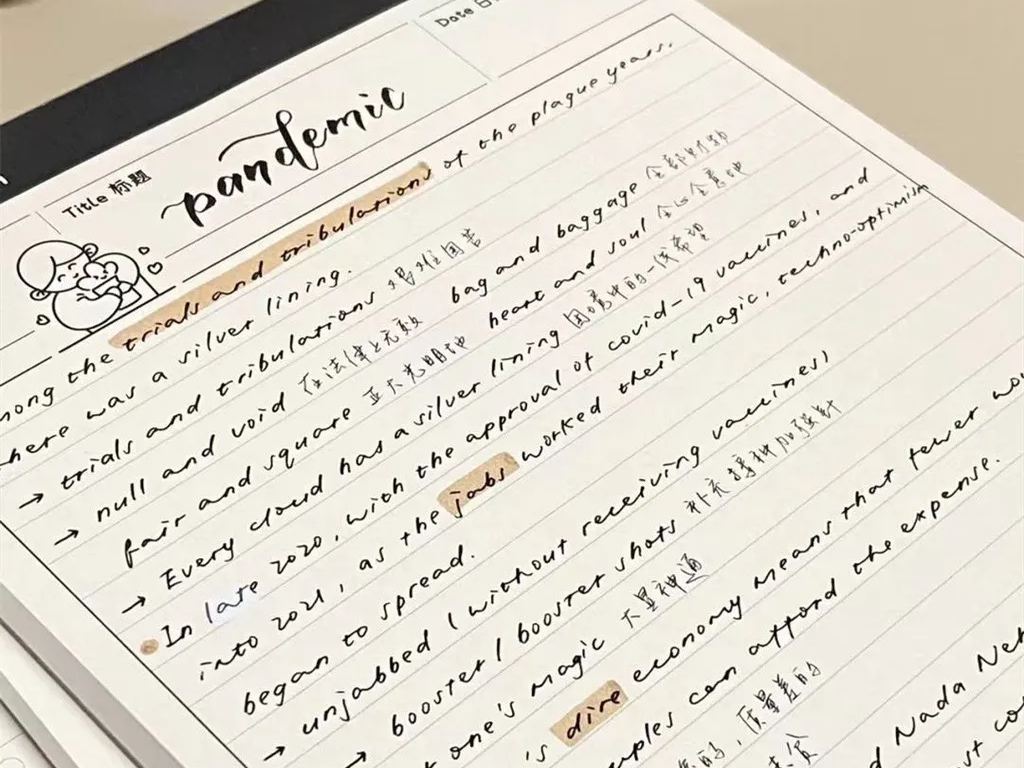 Date 日
Title 标题
pandemic
mong the trials and tribulations of the plague years,
here was a silver lining.
→ trials and tribulations 艰难困苦 bag and baggage 全部财物
→ null and void 在法律上无效 heart and soul 全心全意地
fair and square 正大光明地
→ Every cloud has a silver lining 困境中的一线希望
In late 2020, with the approval of covid-19 vaccines, and
into 2021, as the jabs worked their magic, techno-optimism
began to spread.
→ unjabbed (without receiving vaccines)
→ booster / booster shots 补充接种加强针
one's magic 大显神通
's dire economy means that fewer
can afford the expense.
质量差的
Nada